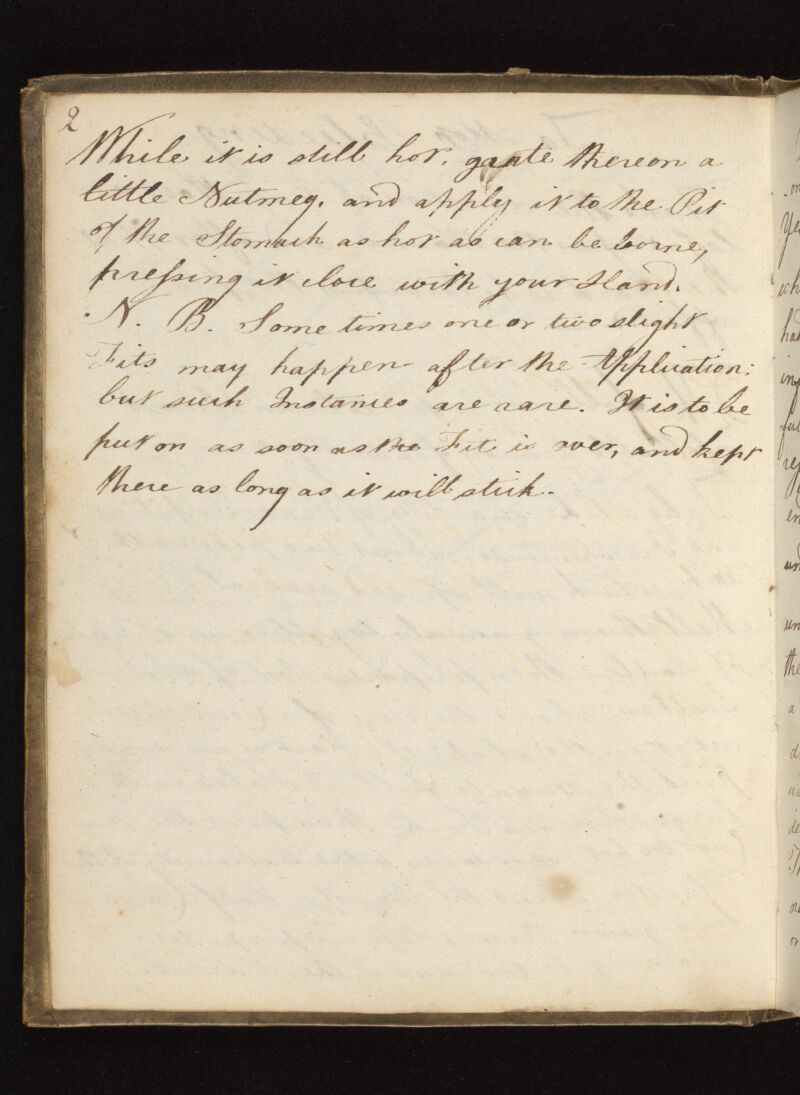 2
While it is still hot, grate thereon a
little Nutmeg, and apply it to the Pit
of the Stomach as hot as can be borne,
pressing it close with your Hand.
N. B. Some times one or two slight
Fits may happen after the Application:
but such Instances are rare. It is to be
put on as soon as the Fit is over, and kept
there as long as it will stick.